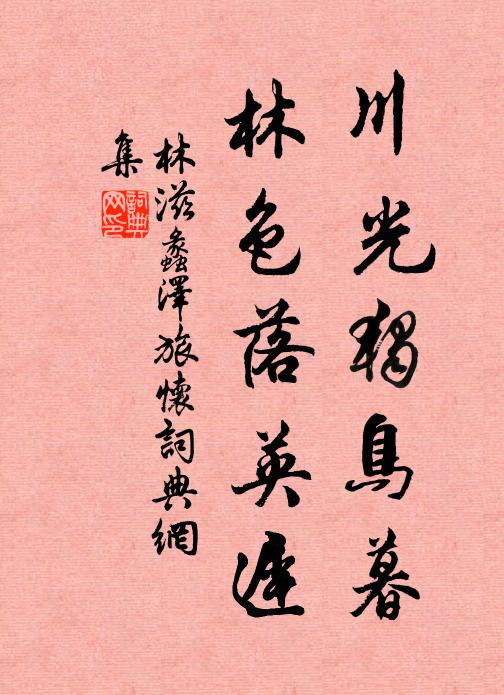 川光獨鳥暮
林色落英遲
林滋蠡澤旅懷詞典網
集
詞典網印